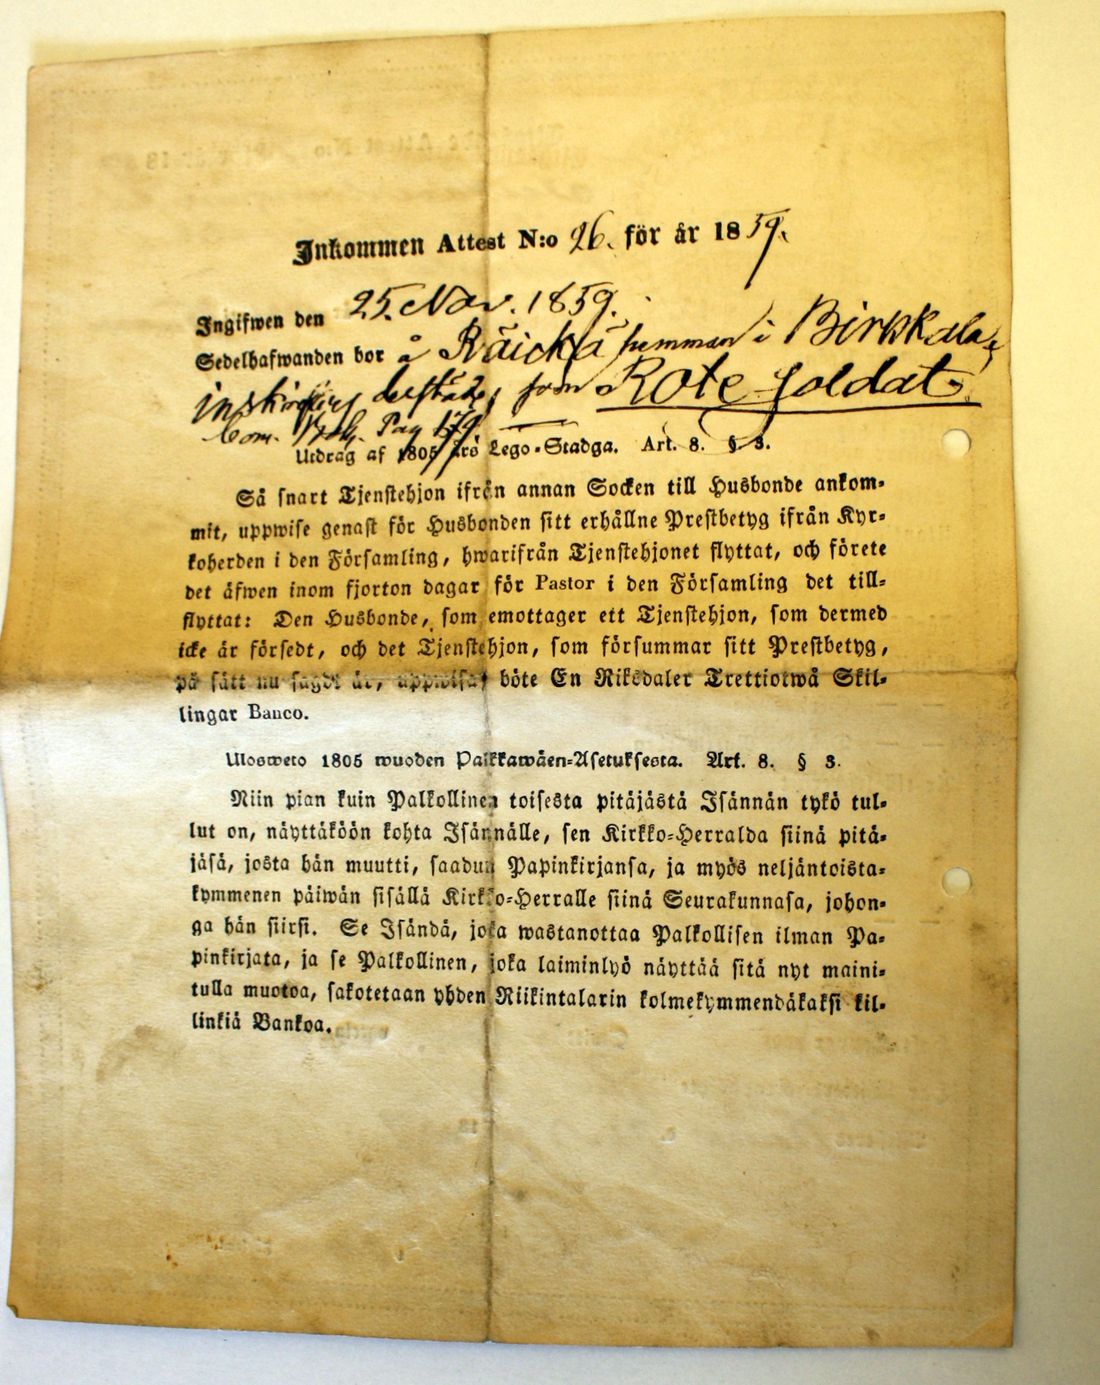 Inkommen Attest N:o 26. för år 1859.
Ingifwen den 25. Nov. 1859.
Sedelhafwanden bor å Räickä hemman i Birkkala,
inskrifwen derstädes som Rote Soldat,
Com. Bok. Pag 179.
Utdrag af 1805 års Lego-Stadga. Art. 8. § 3.
Så snart Tjenstehjon ifrån annan Socken till Husbonde ankom-
mit, uppwise genast för Husbonden sitt erhållne Prestbetyg ifrån Kyr-
koherden i den Församling, hwarifrån Tjenstehjonet flyttat, och förete
det äfwen inom fjorton dagar för Pastor i den Församling det till-
flyttat: Den Husbonde, som emottager ett Tjenstehjon, som dermed
icke är försedt, och det Tjenstehjon, som försummar sitt Prestbetyg,
på sätt nu sagdt är, uppwisa, böte En Riksdaler Trettiotwå Skil-
lingar Banco.
Ulosweto 1805 wuoden Palkkawäen-Asetuksesta. Art. 8. § 3.
Niin pian kuin Palkollinen toisesta pitäjästä Isännän tykö tul-
lut on, näyttäköön kohta Isännälle, sen Kirkko-Herralda siinä pitä-
jäsä, josta hän muutti, saadun Papinkirjansa, ja myös neljäntoista-
kymmenen päiwän sisällä Kirkko-Herralle siinä Seurakunnasa, johon-
ga hän siirsi. Se Isändä, joka wastanottaa Palkollisen ilman Pa-
pinkirjata, ja se Palkollinen, joka laiminlyö näyttää sitä nyt maini-
tulla muotoa, sakotetaan yhden Riikintalarin kolmekymmendäkaksi kil-
linkiä Bankoa.